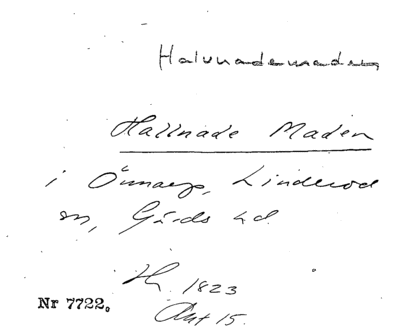 Halvnademaden
Hallnade Maden
i Önnarp, Linderöd
sn, Gärds hd
1823
Akt 15.
Nr 7722.